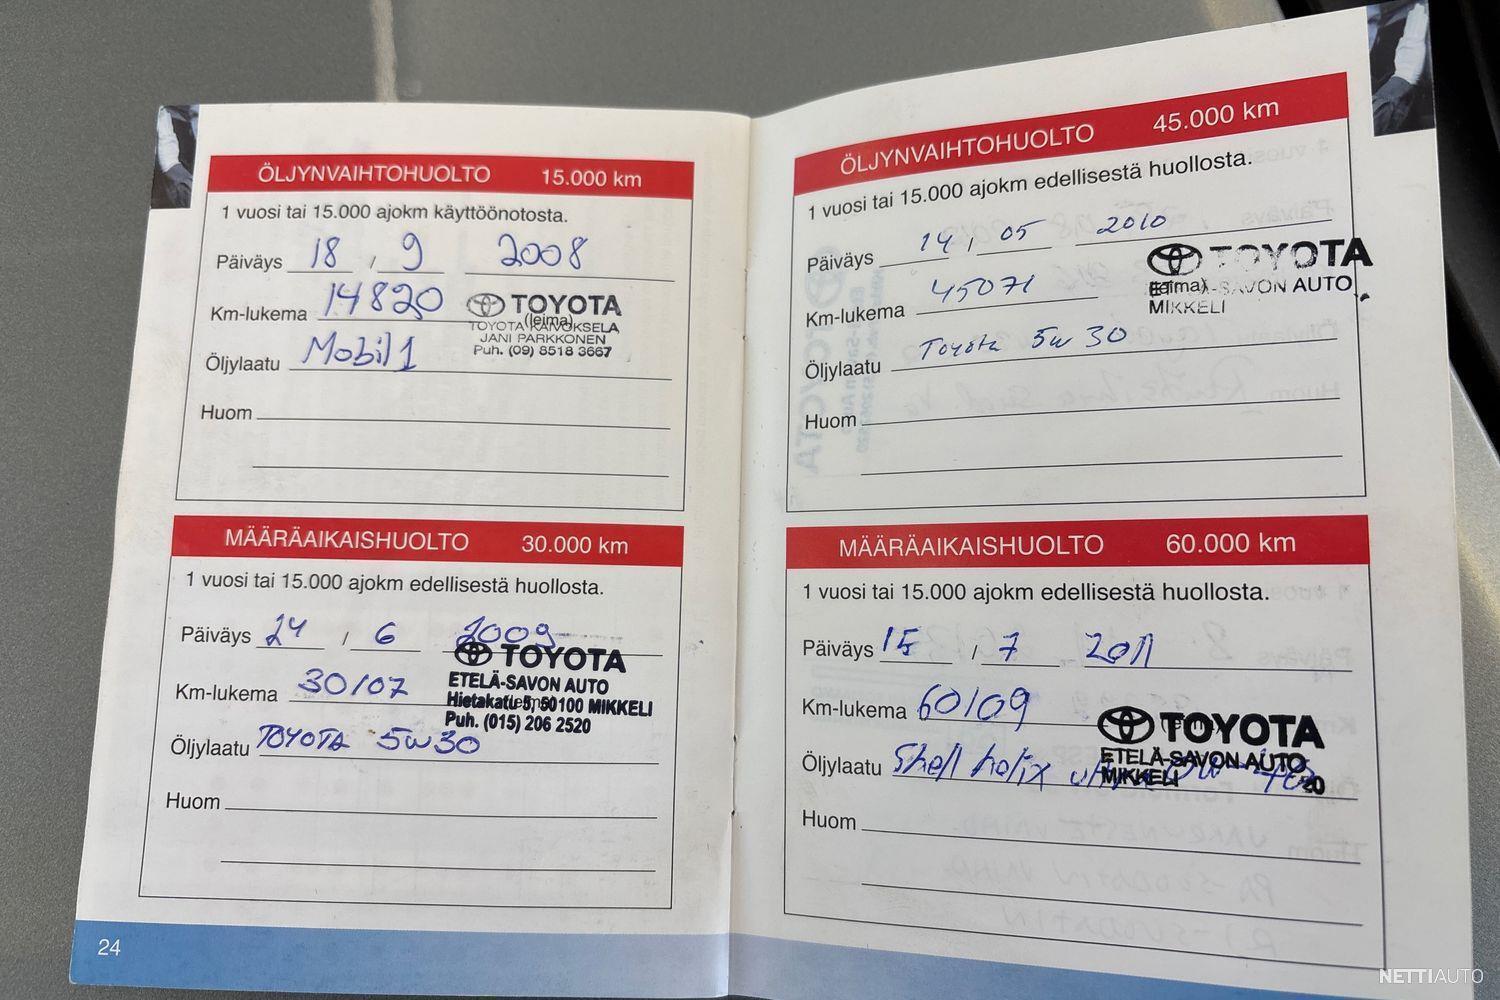 ÖLJYNVAIHTOHUOLTO 15.000 km
1 vuosi tai 15.000 ajokm käyttöönotosta.
Päiväys 18 / 9 2008
Km-lukema 14820
TOYOTA
(leima)
TOYOTA KAIVOKSELA
JANI PARKKONEN
Puh. (09) 8518 3667
Öljylaatu Mobil 1
Huom
MÄÄRÄAIKAISHUOLTO 30.000 km
1 vuosi tai 15.000 ajokm edellisestä huollosta.
Päiväys 24 / 6 2009
Km-lukema 30107
TOYOTA
ETELÄ-SAVON AUTO
Hietakatu 5, 50100 MIKKELI
Puh. (015) 206 2520
Öljylaatu TOYOTA 5w30
Huom
24
ÖLJYNVAIHTOHUOLTO 45.000 km
1 vuosi tai 15.000 ajokm edellisestä huollosta.
Päiväys 14 / 05 2010
Km-lukema 45071
TOYOTA
(leima)
ETELÄ-SAVON AUTO
MIKKELI
Öljylaatu Toyota 5w30
Huom
MÄÄRÄAIKAISHUOLTO 60.000 km
1 vuosi tai 15.000 ajokm edellisestä huollosta.
Päiväys 15 / 7 2011
Km-lukema 60109
TOYOTA
ETELÄ-SAVON AUTO
MIKKELI
Öljylaatu Shell helix
Huom
NETTIAUTO